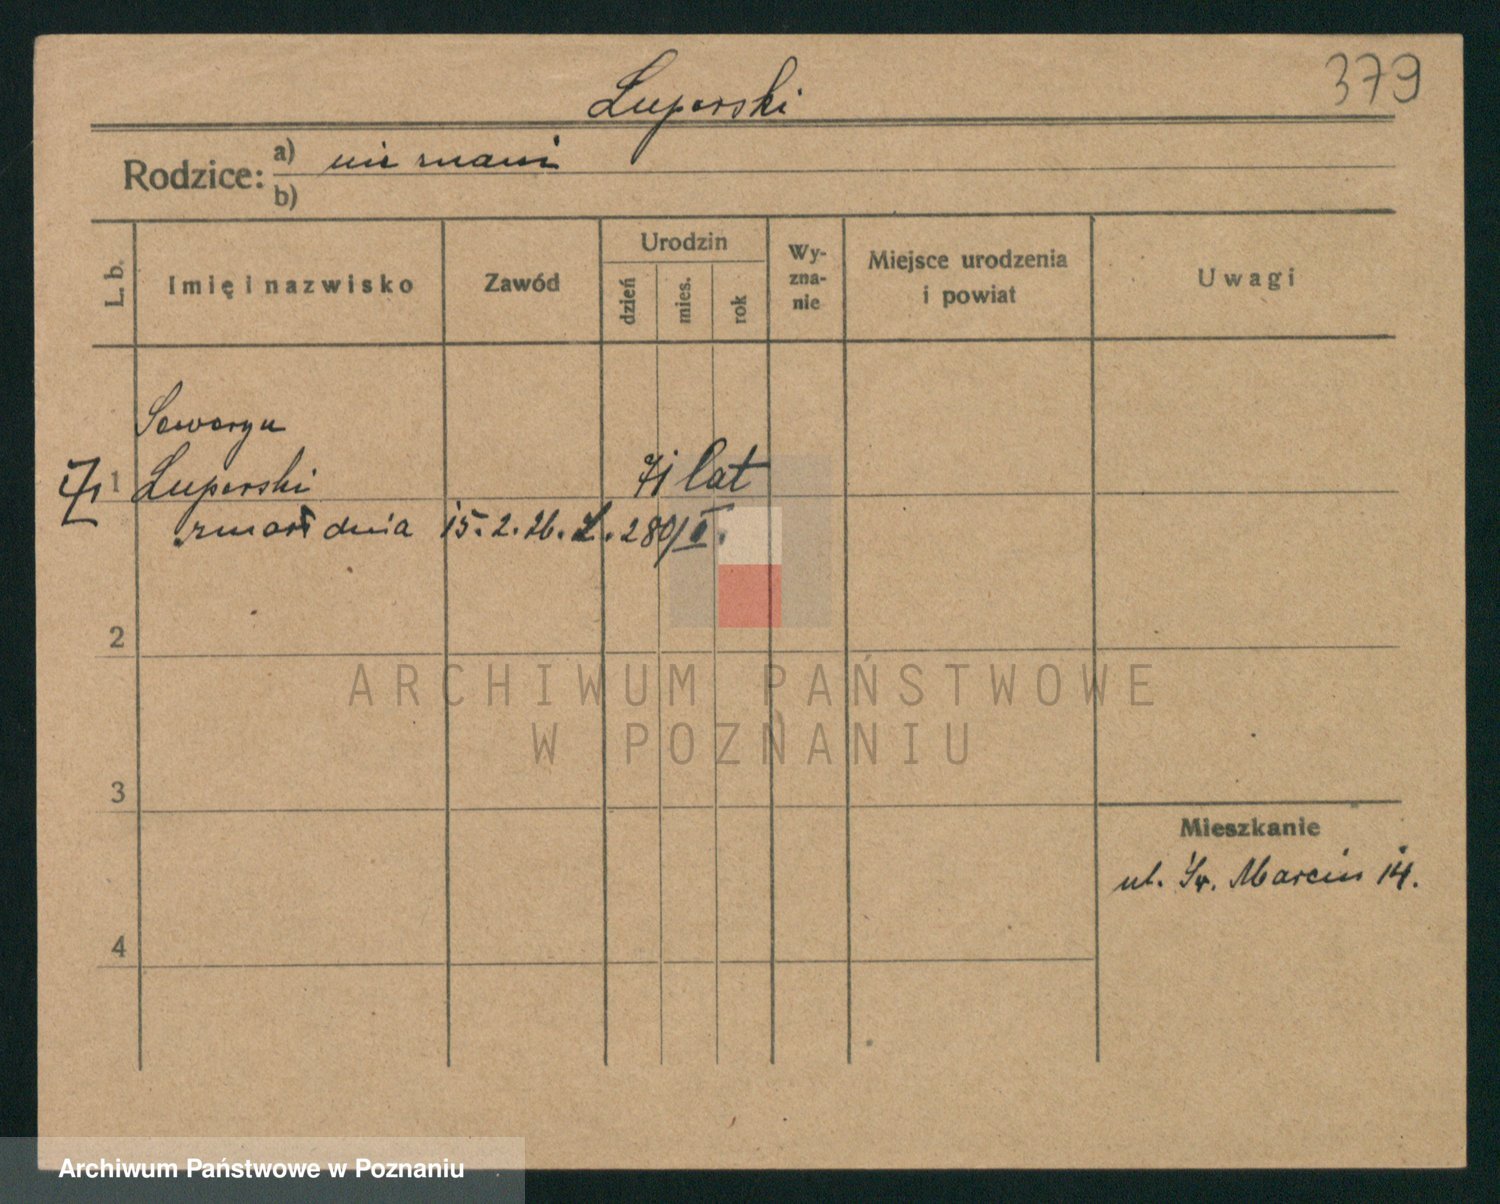 Luperski
379
Rodzice:
a) nie znani
b)
L. b.
Imię i nazwisko
Zawód
Urodzin
dzień
mies.
rok
Wy-
zna-
nie
Miejsce urodzenia
i powiat
Uwagi
Seweryn
1 Luperski
71 lat
zmarł dnia 15.2.26. L. 280/II.
2
3
4
Mieszkanie
ul. Św. Marcin 14.
ARCHIWUM PAŃSTWOWE
W POZNANIU
Archiwum Państwowe w Poznaniu